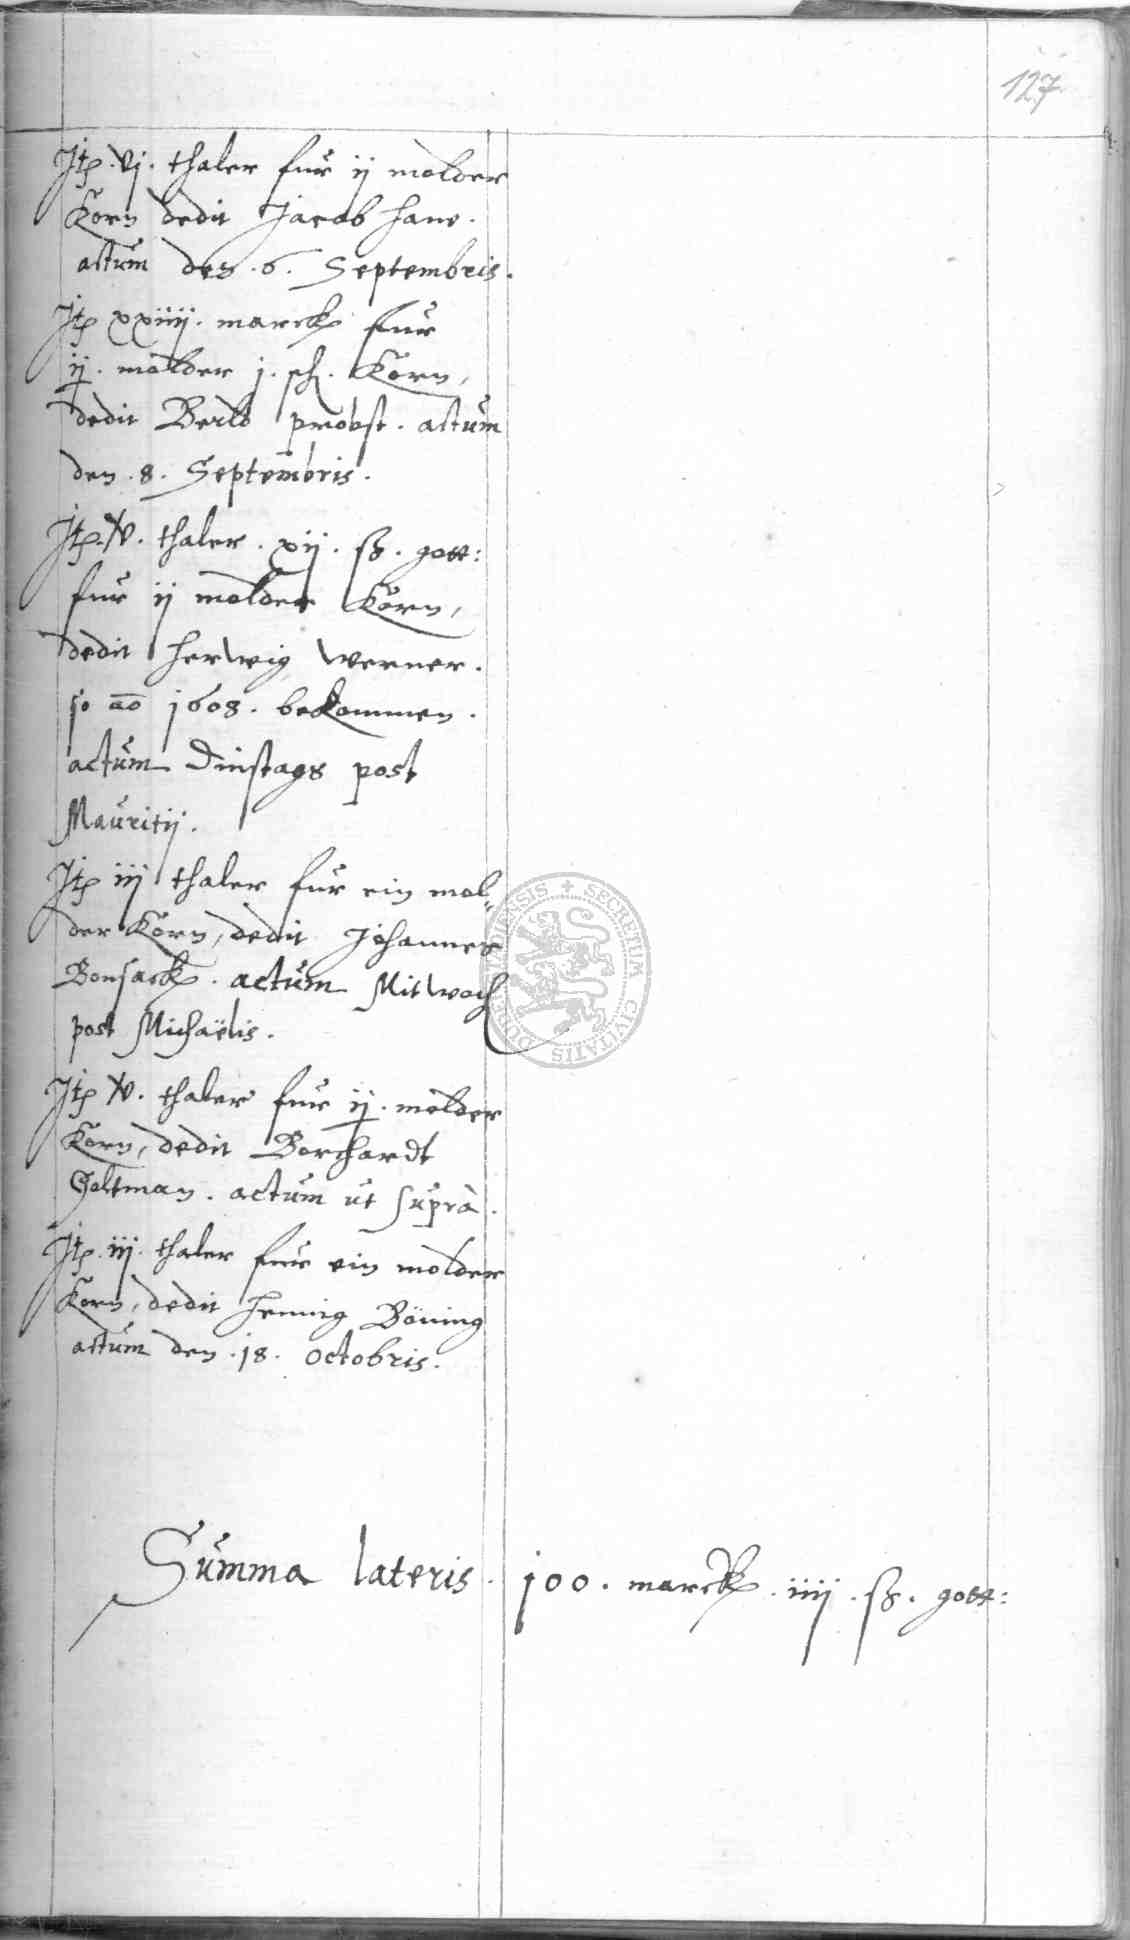 127
Itꝑ. vj. thaler fur ij molder
Korn dedit Jacob Hane.
actum den .6. Septembris.
Itꝑ xxiiij. marck fur
ij. molder j. sch. Korn,
dedit Berld probst. actum
den .8. Septembris.
Itꝑ. V. thaler . xij . ß . gott:
fur ij molder Korn,
dedit Herwig Werner.
so ao 1608. bekommen.
actum Dinstags post
Mauritij.
Itꝑ iij thaler fur ein mol„
der Korn, dedit Johannes
Bonsack. actum Mitwoch
post Michaëlis.
Itꝑ V. thaler fur ij. molder
Korn, dedit Borchardt
Goltman. actum ut supra.
Itꝑ. iij. thaler fur ein molder
Korn, dedit Hennig Böning
actum den .18. Octobris.
Summa lateris. 100. marck. iiij. ß. gott:
SECRETUM CIVITATIS DUDERSTADIENSIS